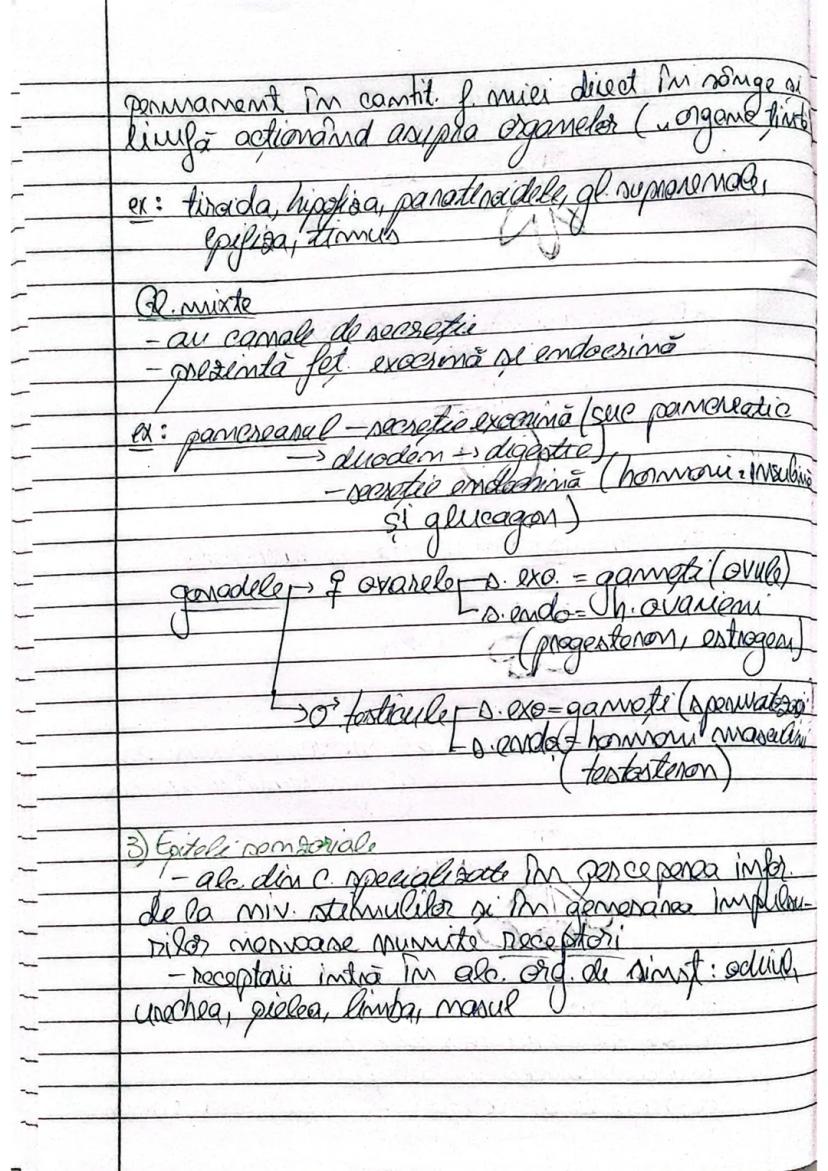 permanent în cantit. f. mici direct în sânge și
limfă acționând asupra organelor („organe țintă
ex: tiroida, hipofiza, paratiroidele, gl. suprarenale,
epifiza, timus
Gl. mixte
- au canale de secreție
- prezintă fct. exocrină și endocrină
ex: pancreasul - secreție exocrină (suc pancreatic
→ duoden → digestie)
- secreție endocrină (hormoni: insulină
și glucagon)
gonadele → ♀ ovarele s. exo. = gameți (ovule)
s. endo = h. ovarieni
(progesteron, estrogen)
→ ♂ testicule s. exo = gameți (spermatozoi
s. endo = hormoni masculini
(testosteron)
3) Epitelii senzoriale
- alc. din c. specializate în perceperea infor.
de la niv. stimulilor și în generarea impulsu-
rilor nervoase numite receptori
- receptorii intră în alc. org. de simț: ochiul,
urechea, pielea, limba, nasul